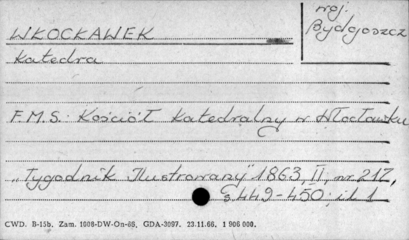 WŁOCŁAWEK
woj.
Bydgoszcz
Katedra
F.M.S. Kościół Katedralny w Włocławku
„Tygodnik Ilustrowany" 1863, II, nr 217,
s. 449-450; il. 1
CWD. B-15b. Zam. 1908-DW-On-66, GDA-3097. 23.11.66. 1 906 000.